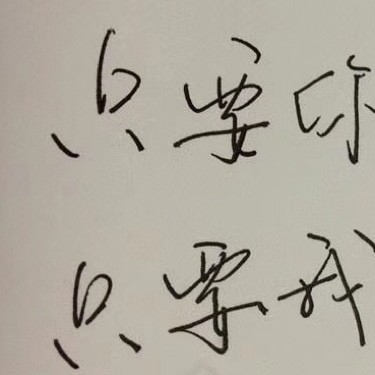 只要你
只要我